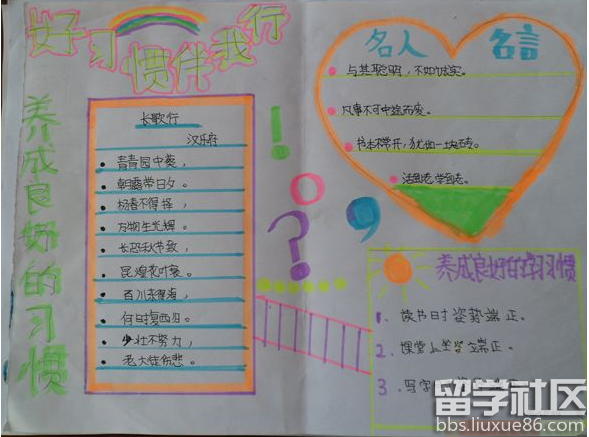 好习惯伴我行
养成良好的习惯
长歌行
汉乐府
青青园中葵，
朝露带日夕。
杨春不得择，
万物生光辉。
长恐秋节致，
焜煌花叶衰。
百川东海，
何时复西归。
少壮不努力，
老大徒伤悲。
! ○ ? ，
名人 名言
与其聪明，不如诚实。
凡事不可中途而废。
书本不常开，犹如一块砖。
活到老，学到老。
养成良好的学习习惯
1、读书时姿势端正。
2、课堂上坐姿端正。
3、写字
留学社区
bbs.liuxue86.com